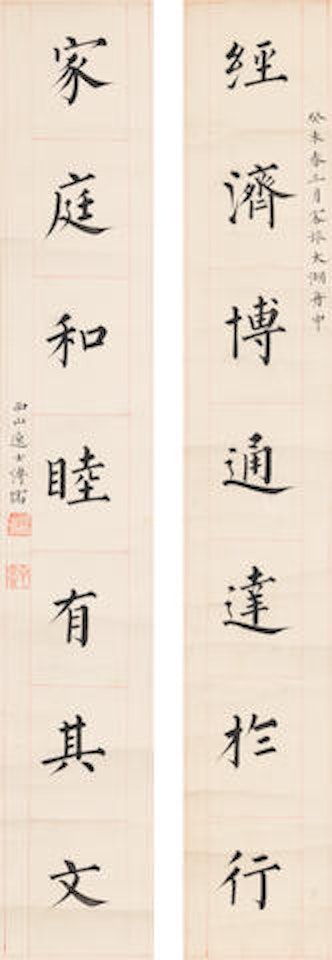 癸未春三月太湖舟中
經濟博通達於行
家庭和睦有其文
西山逸士溥儒